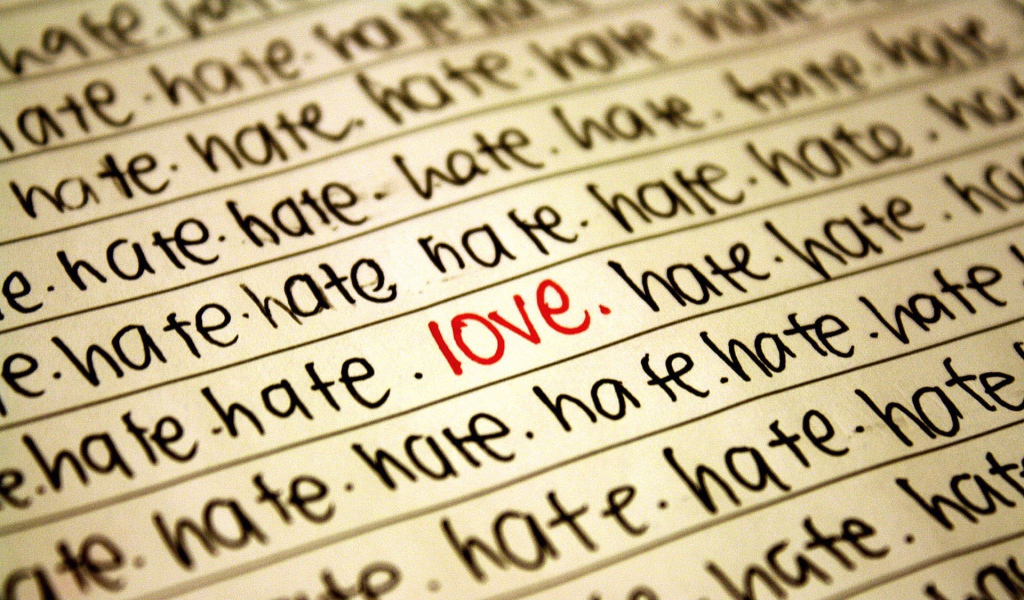 hate. hate
hate. hate. hate. hate
hate. hate. hate. hate. hate
e. hate. hate. hate. hate. hate. hate
e. hate. hate hate. hate. hate. hat
e. hate. hate. love. hate. hate. ha
ate. hate. hate. hate. hate. hate
ate. hate. hate. hate
hate. hate